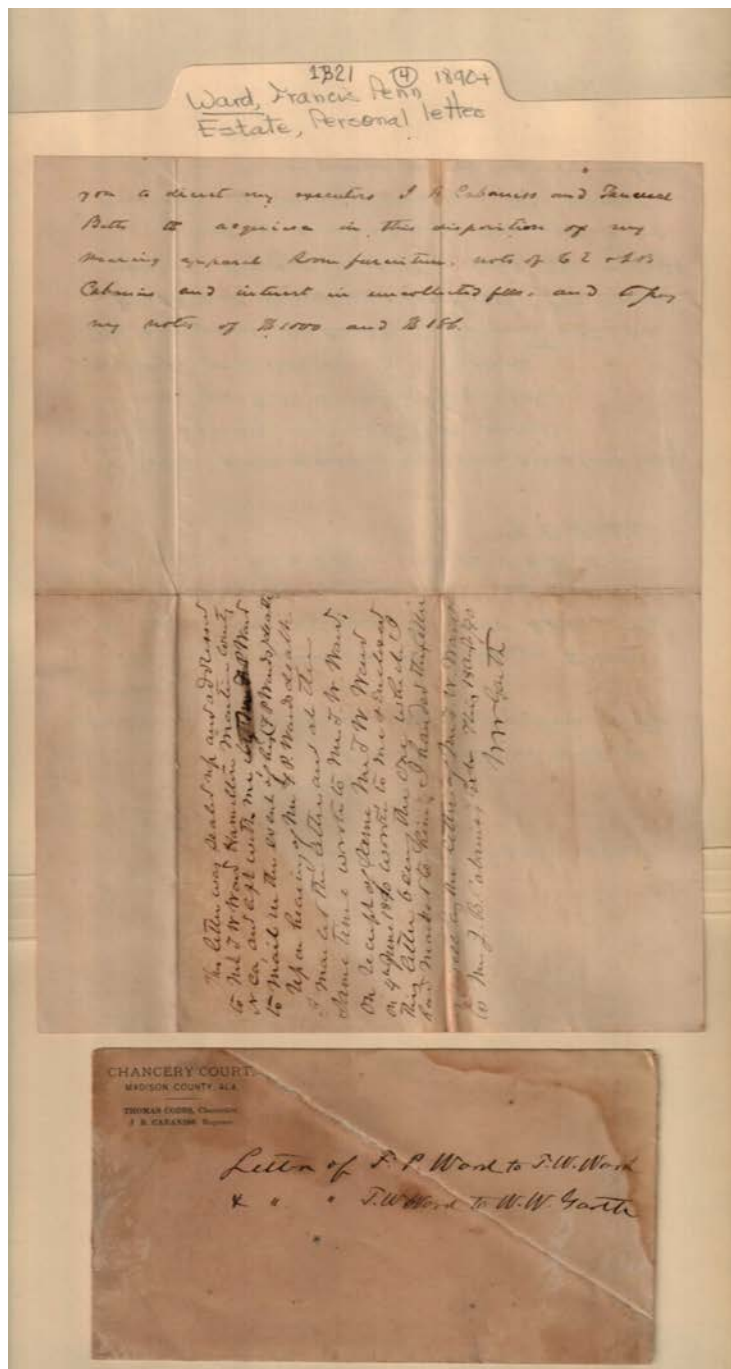 1821 (4) 1890+
Ward, Francis Penn
Estate, Personal letter
you to direct my executors J B Cabaniss and Tancred
Betts to acquiesce in this disposition of my
wearing apparel Room furniture. note of
Cabaniss and interest in uncollected fees. and to pay
my notes of $1000 and $166.
This letter was sealed up and addressed
to Mr. T W Ward Hamilton Martin County
N Ca, and left with me by F P Ward
to mail in the event of his, F P Wards, death
Upon hearing of Mr F P Wards death
I mailed the letter and at the
same time wrote to Mr T W Ward,
on receipt of same Mr T W Ward
on 9 June 1890 wrote to me & enclosed
this letter being the copy which I
had mailed to him, I handed this letter
as well as the letter of Mr T W Ward
to Mr J. B. Cabaniss on this, 1890
W W Garth
CHANCERY COURT.
MADISON COUNTY, ALA.
THOMAS COBBS, Chancellor.
J. B. CABANISS, Register.
Letter of F. P. Ward to T. W. Ward
& " " T. W. Ward to W. W. Garth